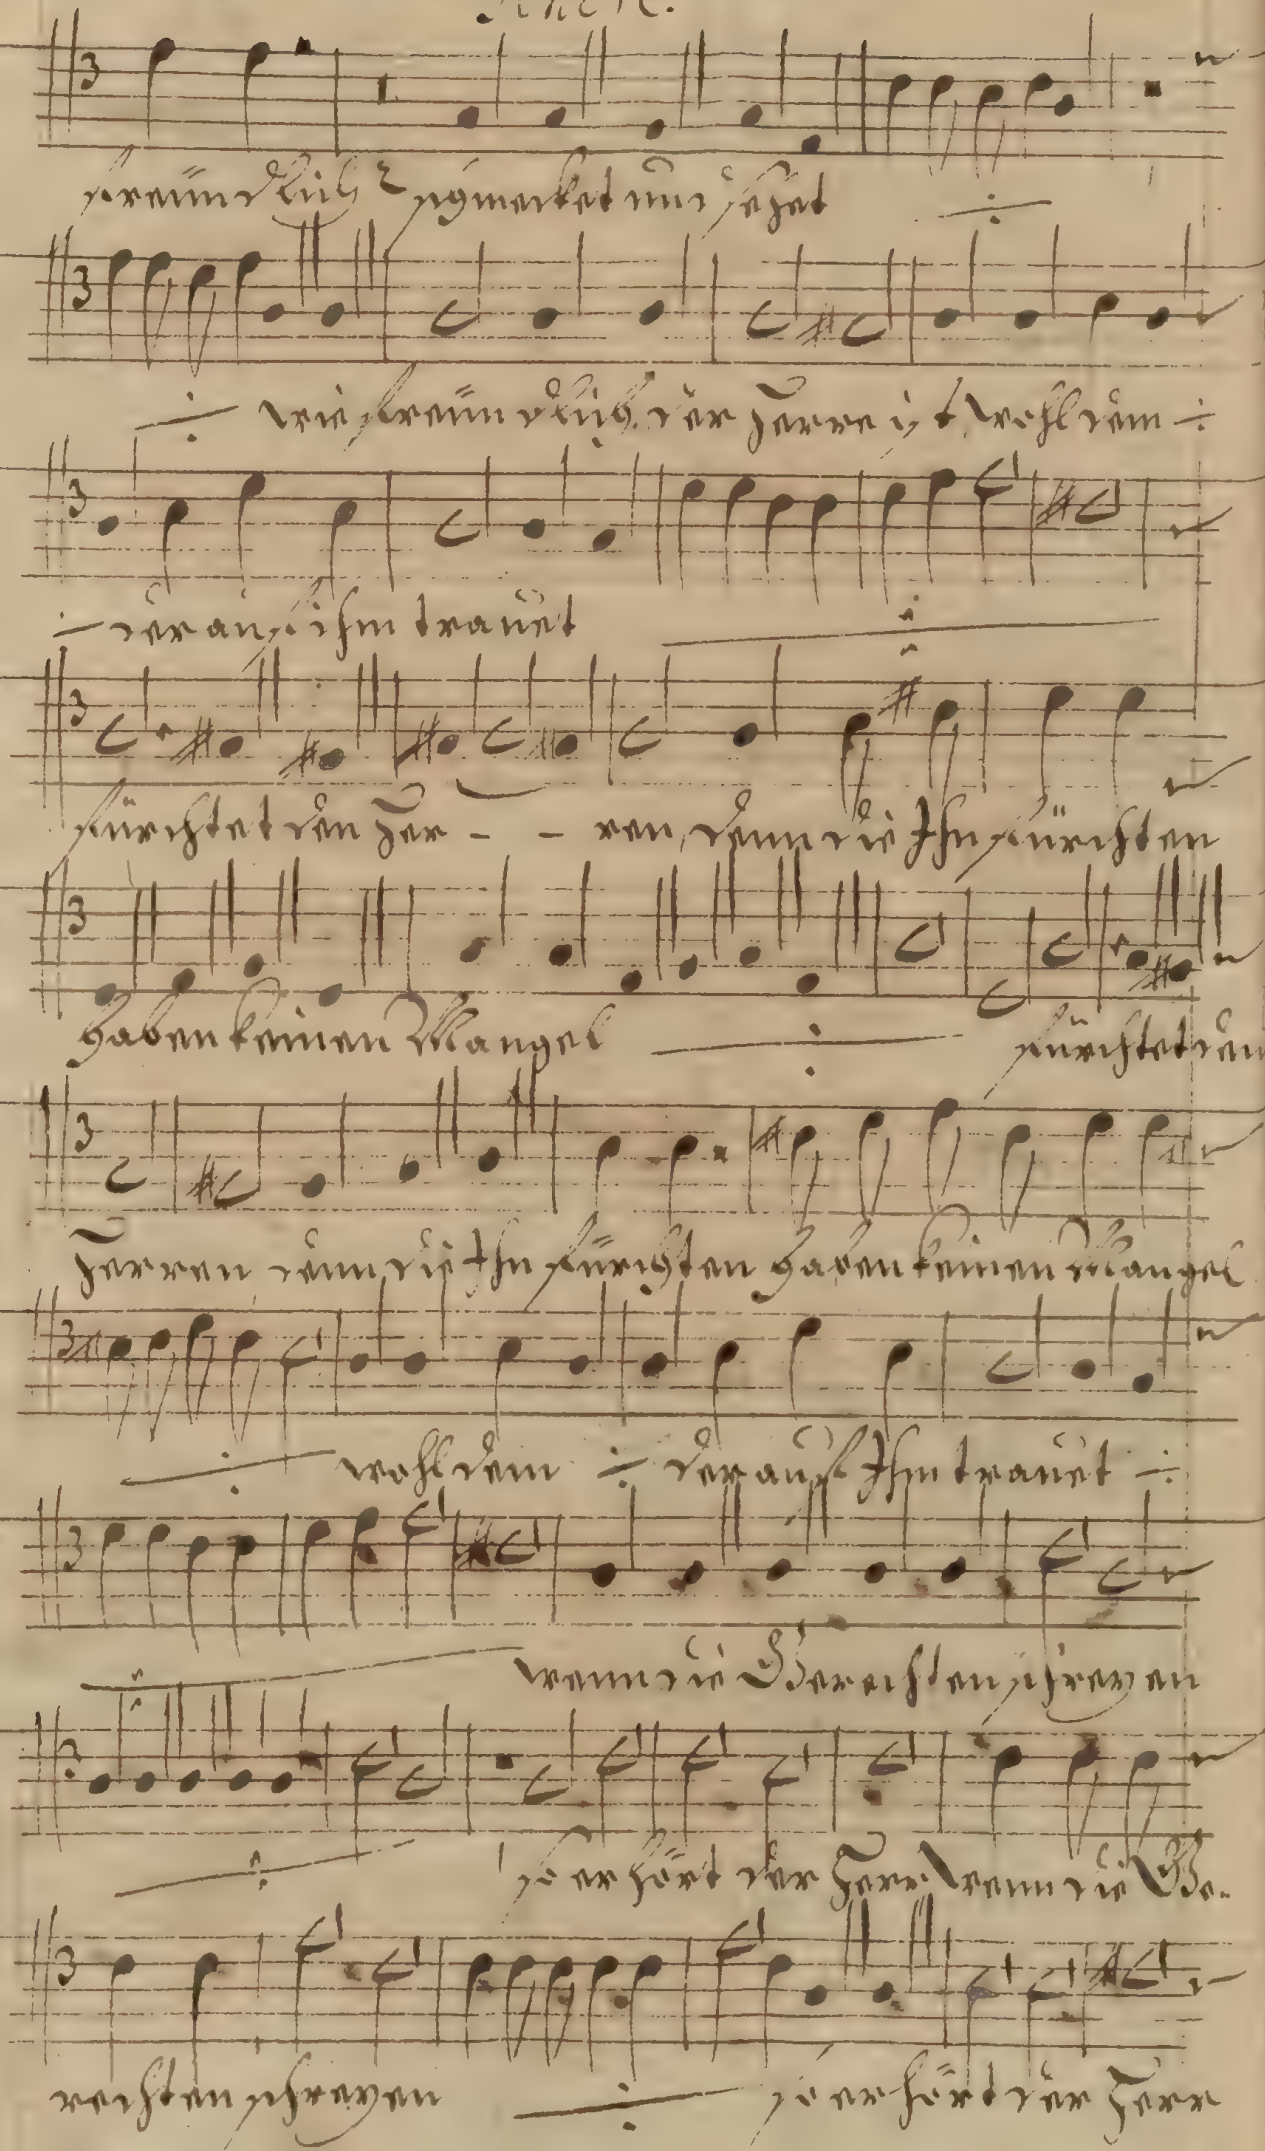 freündlich schmecket und sehet ÷
÷ wie freündlich der Herre ist, wohl dem ÷
÷ der auf ihm trauet ÷
fürchtet den Her - - ren, denn die Ihn fürchten
haben keinen Mangel ÷ fürchtet den
Herren denn die Ihn fürchten haben keinen Mangel
÷ wohl dem ÷ der auf Ihm trauet ÷
wenn die Gerechten schreyen
÷ so erhört der Herr wenn die Ge-
rechten schreyen ÷ so erhört der Herr